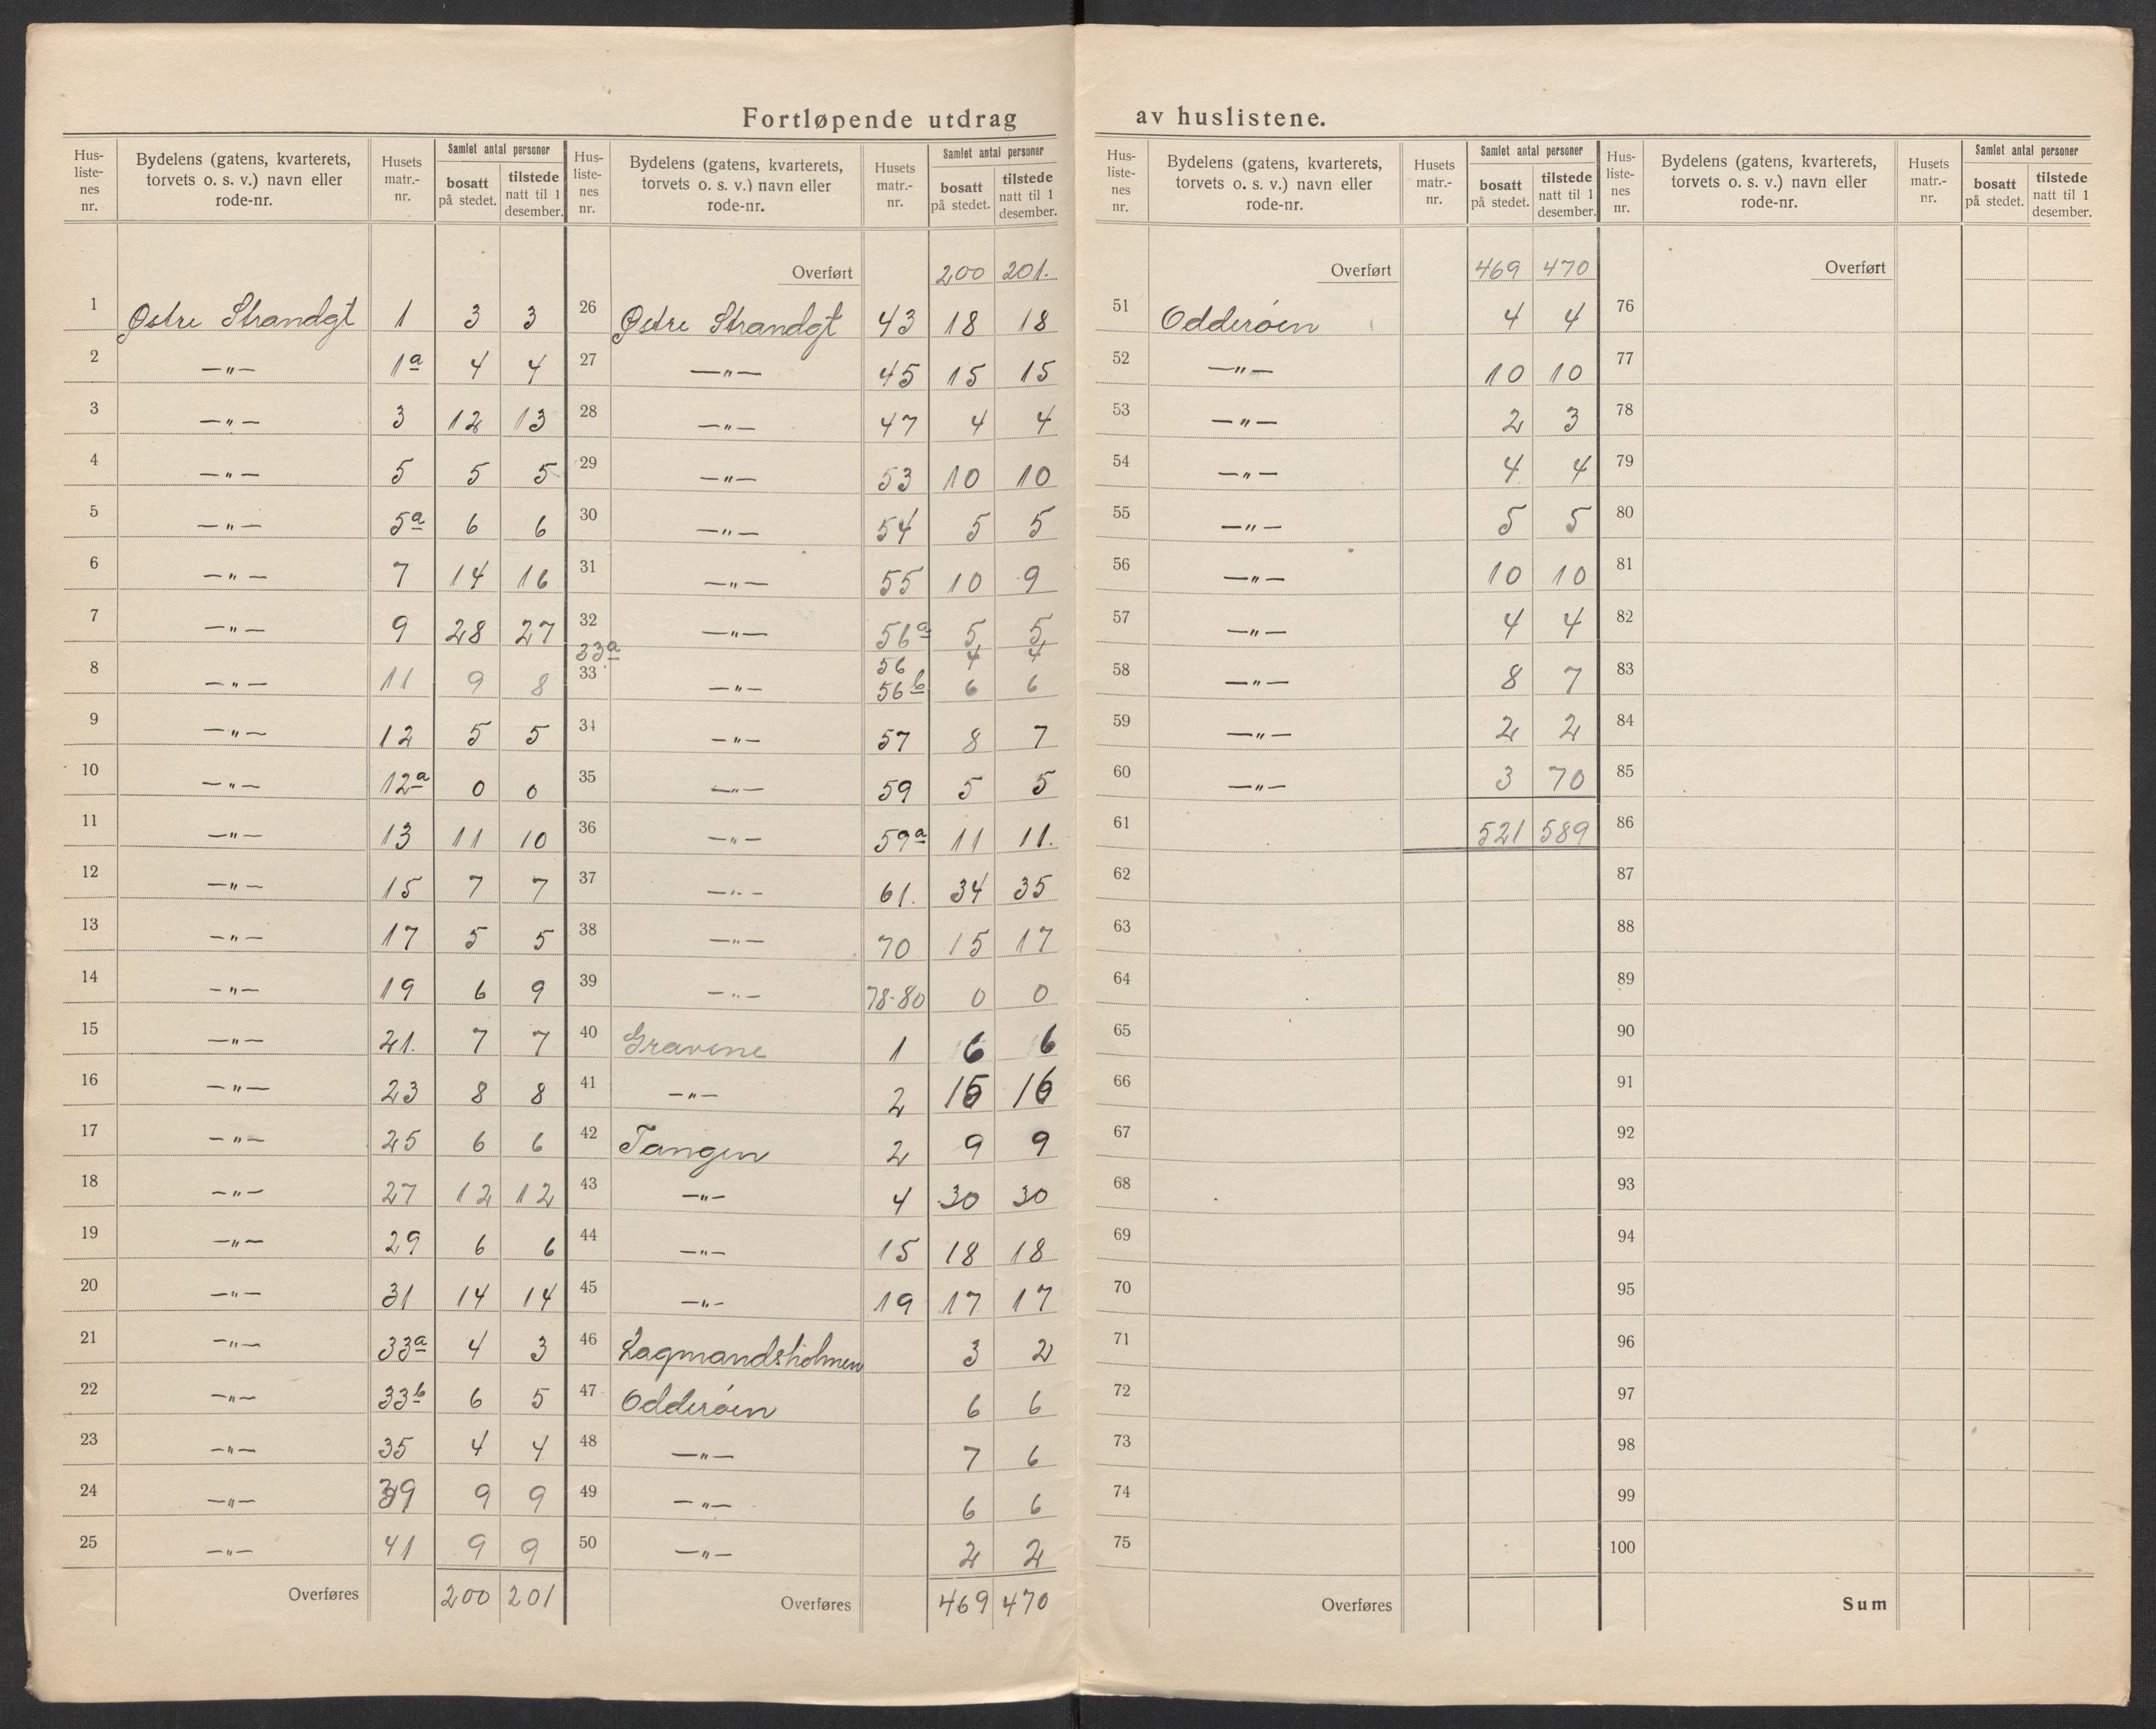 Fortløpende utdrag av huslistene.
Hus-liste-nes nr. | Bydelens (gatens, kvarterets, torvets o. s. v.) navn eller rode-nr. | Husets matr.-nr. | Samlet antal personer | bosatt på stedet. | tilstede natt til 1 desember.
1 Østre Strandgt 1 3 3
2 —"— 1a 4 4
3 —"— 3 12 13
4 —"— 5 5 5
5 —"— 5a 6 6
6 —"— 7 14 16
7 —"— 9 28 27
8 —"— 11 9 8
9 —"— 12 5 5
10 —"— 12a 0 0
11 —"— 13 11 10
12 —"— 15 7 7
13 —"— 17 5 5
14 —"— 19 6 9
15 —"— 21. 7 7
16 —"— 23 8 8
17 —"— 25 6 6
18 —"— 27 12 12
19 —"— 29 6 6
20 —"— 31 14 14
21 —"— 33a 4 3
22 —"— 33b 6 5
23 —"— 35 4 4
24 —"— 39 9 9
25 —"— 41 9 9
Overføres 200 201
Hus-liste-nes nr. | Bydelens (gatens, kvarterets, torvets o. s. v.) navn eller rode-nr. | Husets matr.-nr. | Samlet antal personer | bosatt på stedet. | tilstede natt til 1 desember.
Overført 200 201.
26 Østre Strandgt 43 18 18
27 —"— 45 15 15
28 —"— 47 4 4
29 —"— 53 10 10
30 —"— 54 5 5
31 —"— 55 10 9
32 —"— 56a 5 5
33a 56 4 4
33 —"— 56b 6 6
34 —"— 57 8 7
35 —"— 59 5 5
36 —"— 59a 11 11.
37 —"— 61. 34 35
38 —"— 70 15 17
39 —"— 78-80 0 0
40 Gravene 1 6 6
41 —"— 2 16
42 Tangen 2 9 9
43 —"— 4 30 30
44 —"— 15 18 18
45 —"— 19 17 17
46 Lagmandsholmen 3 2
47 Odderøen 6 6
48 —"— 7 6
49 —"— 6 6
50 —"— 2 2
Overføres 469 470
Hus-liste-nes nr. | Bydelens (gatens, kvarterets, torvets o. s. v.) navn eller rode-nr. | Husets matr.-nr. | Samlet antal personer | bosatt på stedet. | tilstede natt til 1 desember.
Overført 469 470
51 Odderøen 4 4
52 —"— 10 10
53 —"— 2 3
54 —"— 4 4
55 —"— 5 5
56 —"— 10 10
57 —"— 4 4
58 —"— 8 7
59 —"— 2 2
60 —"— 3 70
61 521 589
62
63
64
65
66
67
68
69
70
71
72
73
74
75
Overføres
Hus-liste-nes nr. | Bydelens (gatens, kvarterets, torvets o. s. v.) navn eller rode-nr. | Husets matr.-nr. | Samlet antal personer | bosatt på stedet. | tilstede natt til 1 desember.
Overført
76
77
78
79
80
81
82
83
84
85
86
87
88
89
90
91
92
93
94
95
96
97
98
99
100
Sum